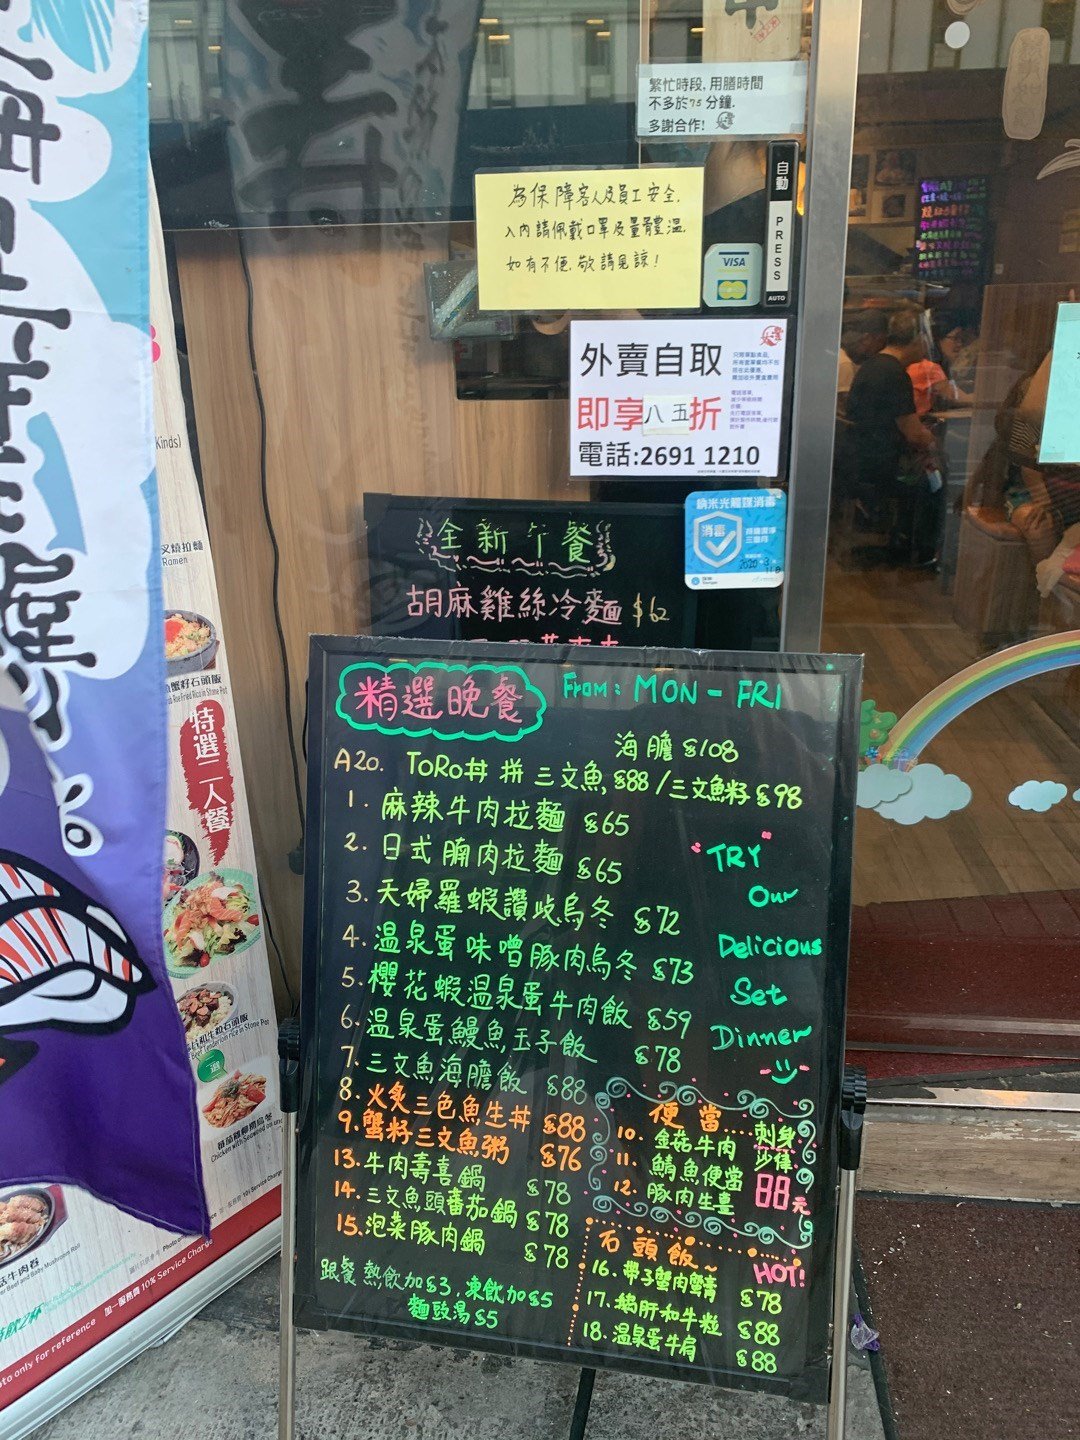 繁忙時段, 用膳時間
不多於75分鐘.
多謝合作!
自動
PRESS
AUTO
為保障客人及員工安全,
入內請佩戴口罩及量體溫,
如有不便,敬請見諒!
VISA
外賣自取
即享八五折
電話:2691 1210
納米光觸媒消毒
消毒
全新午餐
胡麻雞絲冷麵 $62
精選晚餐 FROM: MON - FRI
海膽 $108
A20. TORO丼拼三文魚, $88 / 三文魚籽 $98
1. 麻辣牛肉拉麵 $65
2. 日式腩肉拉麵 $65
3. 天婦羅蝦讚岐烏冬 $72
4. 溫泉蛋味噌豚肉烏冬 $73
5. 櫻花蝦溫泉蛋牛肉飯 $59
6. 溫泉蛋鰻魚玉子飯 $78
7. 三文魚海膽飯 $88
8. 火炙三色魚生丼 $88
9. 蟹籽三文魚粥 $76
13. 牛肉壽喜鍋 $78
14. 三文魚頭蕃茄鍋 $78
15. 泡菜豚肉鍋 $78
跟餐熱飲加$3, 凍飲加$5
麵豉湯$5
TRY
Our
Delicious
Set
Dinner
便當....
10. 金菇牛肉
11. 鯖魚便當
12. 豚肉生薑
刺身
沙律
88元
石頭飯~
HOT!
16. 帶子蟹肉蟹膏 $78
17. 鵝肝和牛粒 $88
18. 溫泉蛋牛肩 $88
Kinds)
叉燒拉麵
Ramen
蟹籽石頭飯
Roe Fried Rice in Stone Pot
特選二人餐
Beef Tenderloin rice in Stone Pot
活牛肉卷
加一服務費 10% Service Charge
Photo only for reference